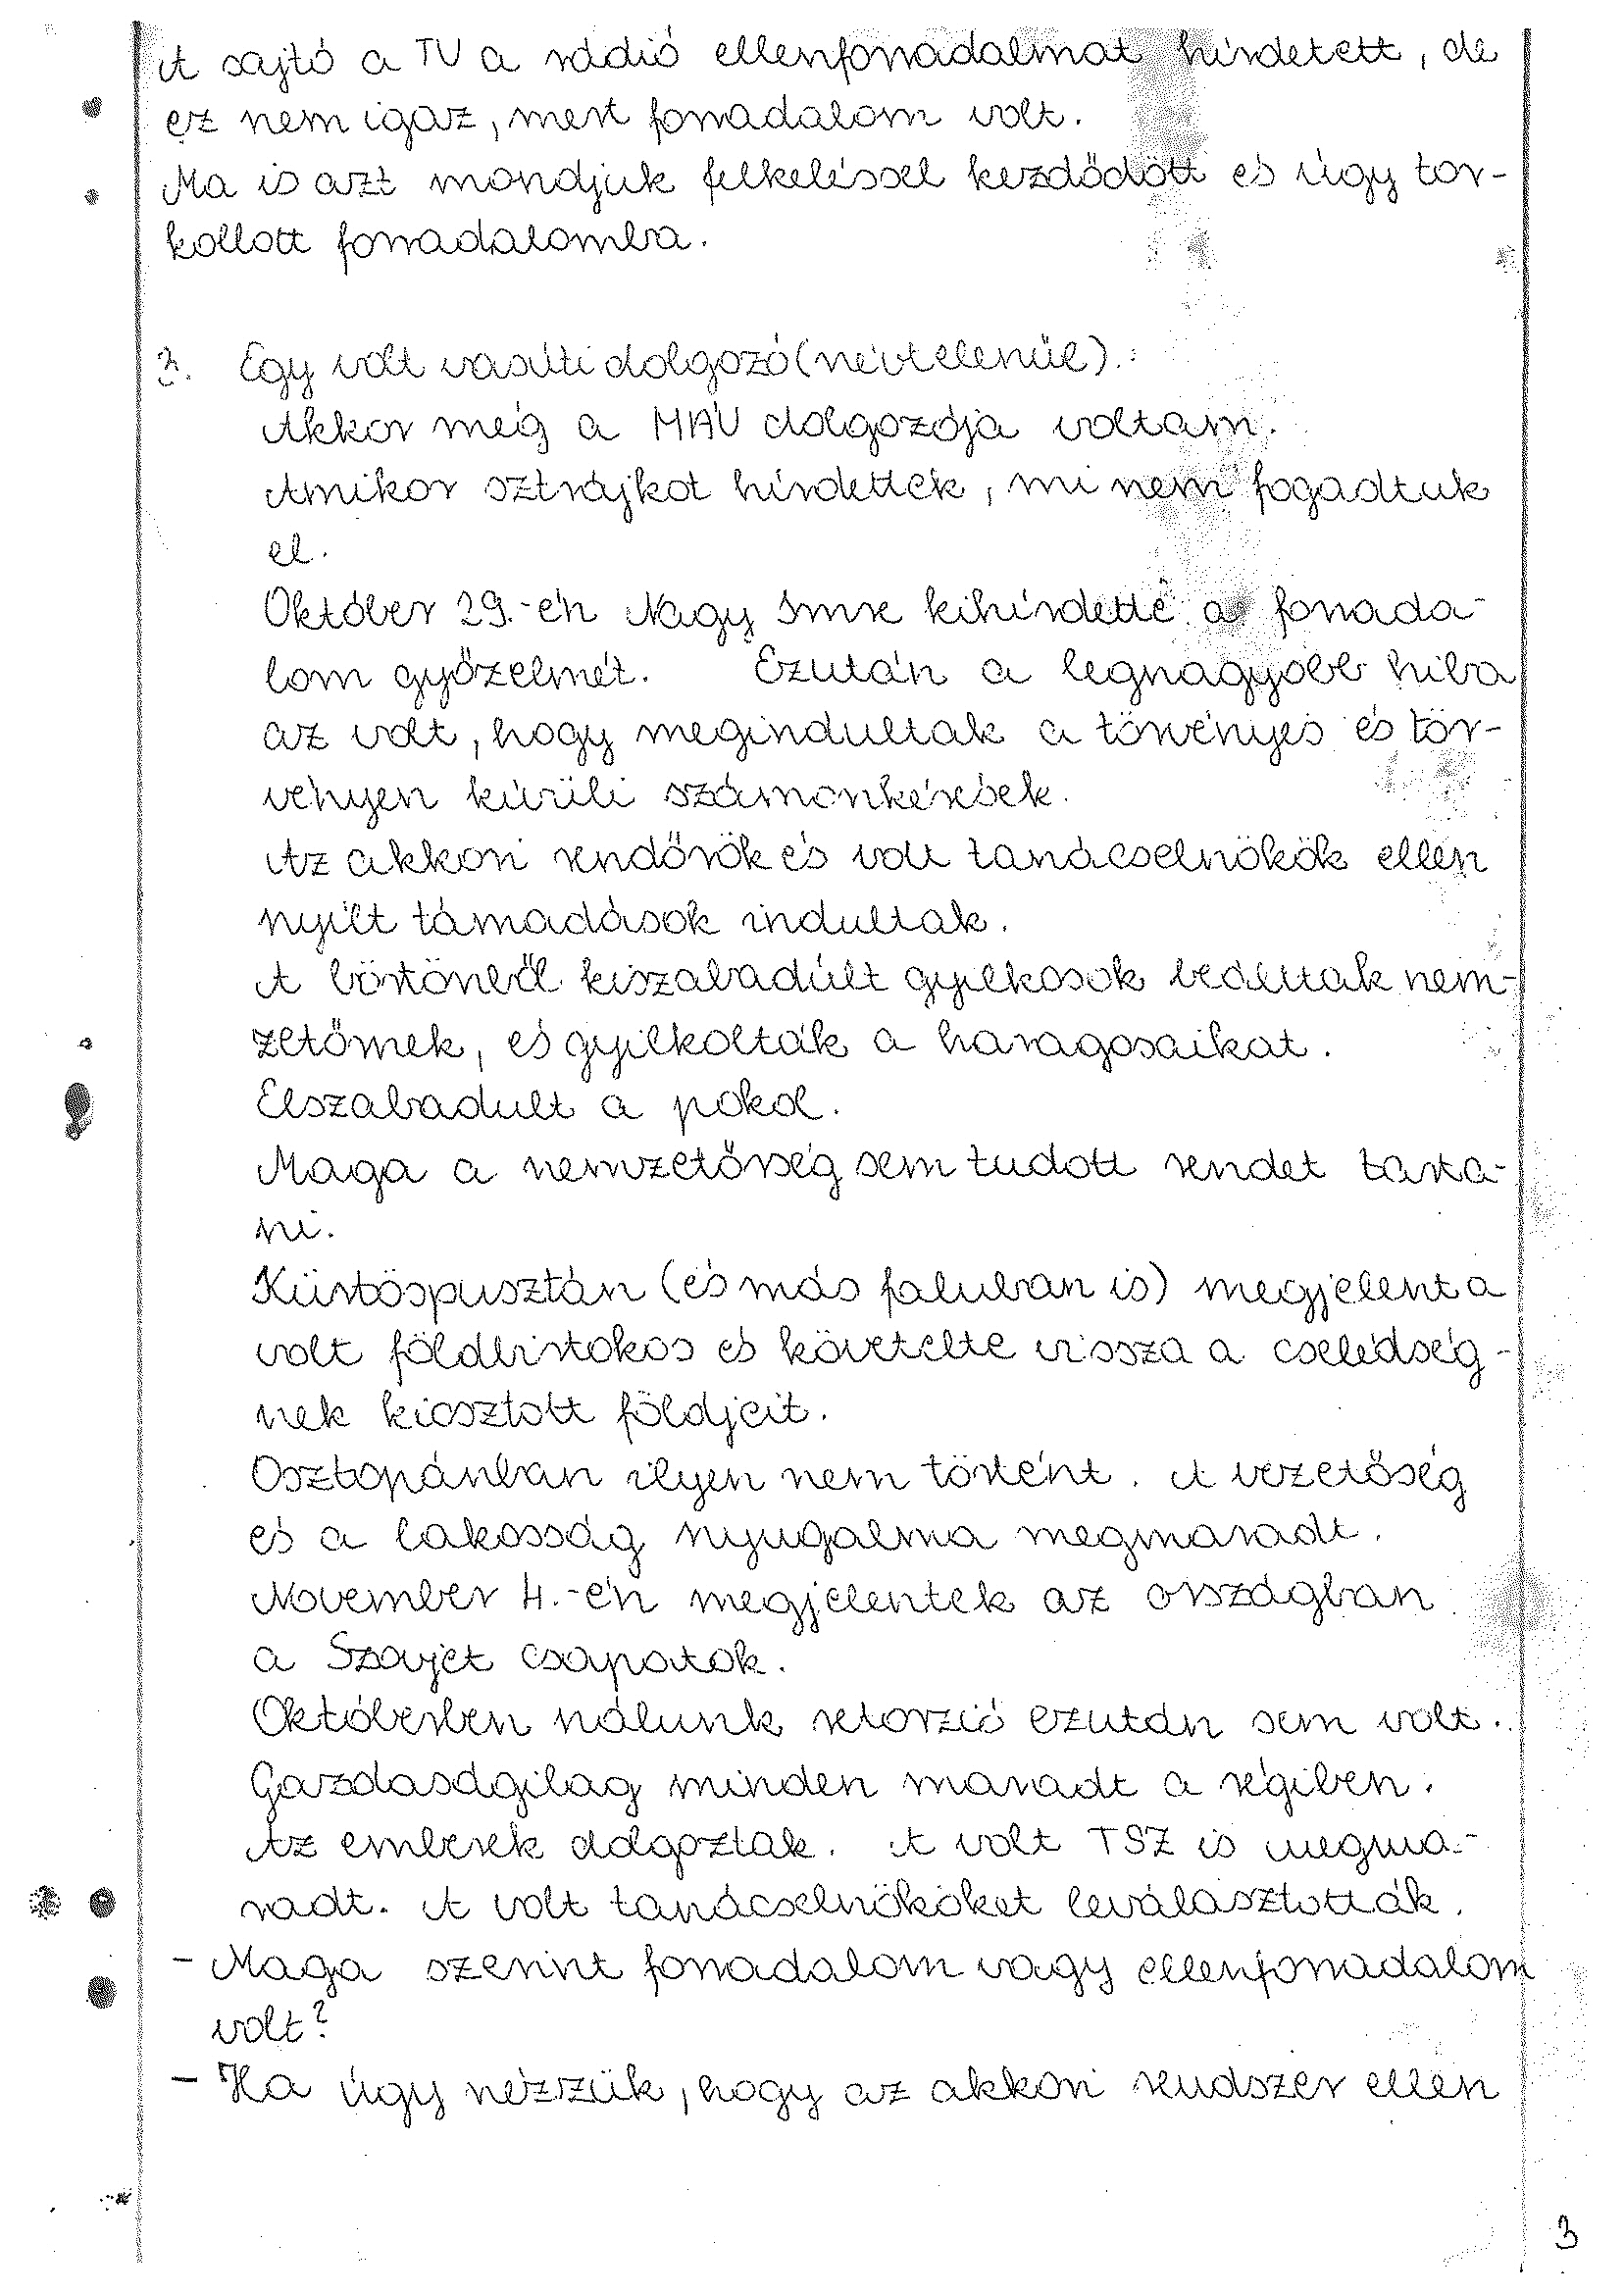 A sajtó a TV a rádió ellenforradalmat hírdetett, de
ez nem igaz, mert forradalom volt.
Ma is azt mondjuk felkeléssel kezdődött és úgy tor-
kollott forradalomba.
3. Egy volt vasúti dolgozó (névtelenül):
Akkor még a MÁV dolgozója voltam.
Amikor sztrájkot hírdettek, mi nem fogadtuk
el.
Október 29.-én Nagy Imre kihírdette a forrada-
lom győzelmét. Ezután a legnagyobb hiba
az volt, hogy megindultak a törvényes és tör-
vényen kívüli számonkérések.
Az akkori rendőrök és volt tanácselnökök ellen
nyílt támadások indultak.
A börtönből kiszabadúlt gyilkosok beálltak nem-
zetőrnek, és gyilkolták a haragosaikat.
Elszabadult a pokol.
Maga a nemzetőrség sem tudott rendet tarta-
ni.
Kürtöspusztán (és más faluban is) megjelent a
volt földbirtokos és követelte vissza a cselédség-
nek kiosztott földjeit.
Osztopánban ilyen nem történt. A vezetőség
és a lakosság nyugalma megmaradt.
November 4.-én megjelentek az országban
a Szovjet csapatok.
Októberben nálunk retorzió ezután sem volt.
Gazdaságilag minden maradt a régiben.
Az emberek dolgoztak. A volt TSZ is megma-
radt. A volt tanácselnököket leválasztották.
- Maga szerint forradalom vagy ellenforradalom
volt?
- Ha úgy nézzük, hogy az akkori rendszer ellen
3